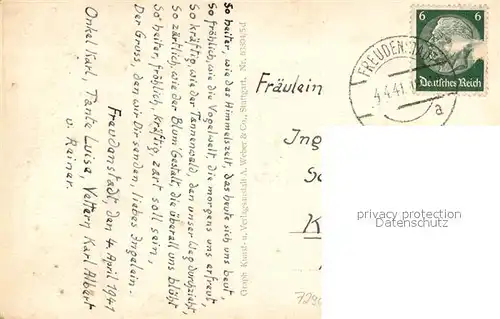 So heiter, wie das Himmelszelt, das heute sich uns beut,
So fröhlich, wie die Vogelwelt, die morgens uns erfreut,
So kräftig, wie der Tannenwald, den unser Weg durchzieht,
So zärtlich, wie der Blum' Gestalt, die überall uns blüht
So heiter, fröhlich, kräftig, zart soll sein,
Der Gruss, den wir Dir senden, liebes Ingelein.
Freudenstadt, den 4. April 1941
Onkel Karl, Tante Luise, Vettern Karl Albert
u. Rainer.
Graph. Kunst- u. Verlagsanstalt A. Weber & Co., Stuttgart.
Fräulein
Ing
S
K
FREUDENSTADT
4.4.41
a
6 6
Deutsches Reich
privacy protection
Datenschutz